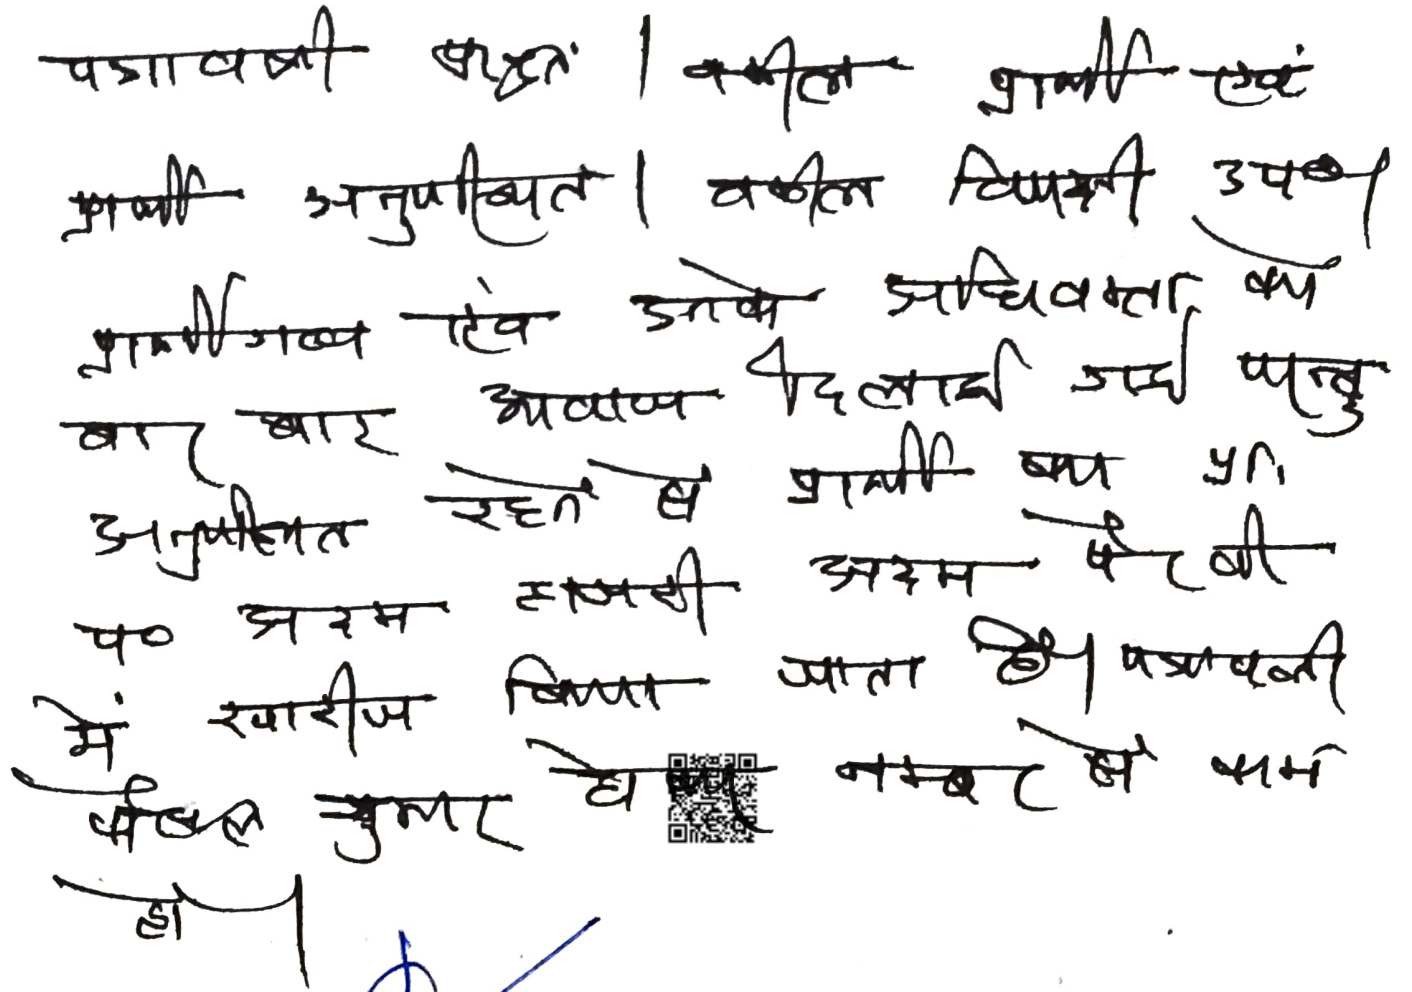 पत्रावली प्रस्तुत। वकील प्रार्थी एवं
प्रार्थी अनुपस्थित। वकील विपक्षी उप०।
प्रार्थीगण एंव उनके अधिवक्ता को
बार बार आवाज दिलाई गई परन्तु
अनुपस्थित रहने से प्रार्थी का प्रा०
प० अदम हाजरी अदम पैरवी
में खारीज किया जाता है। पत्रावली
फैसल शुमार होकर नम्बर से कम
हो।